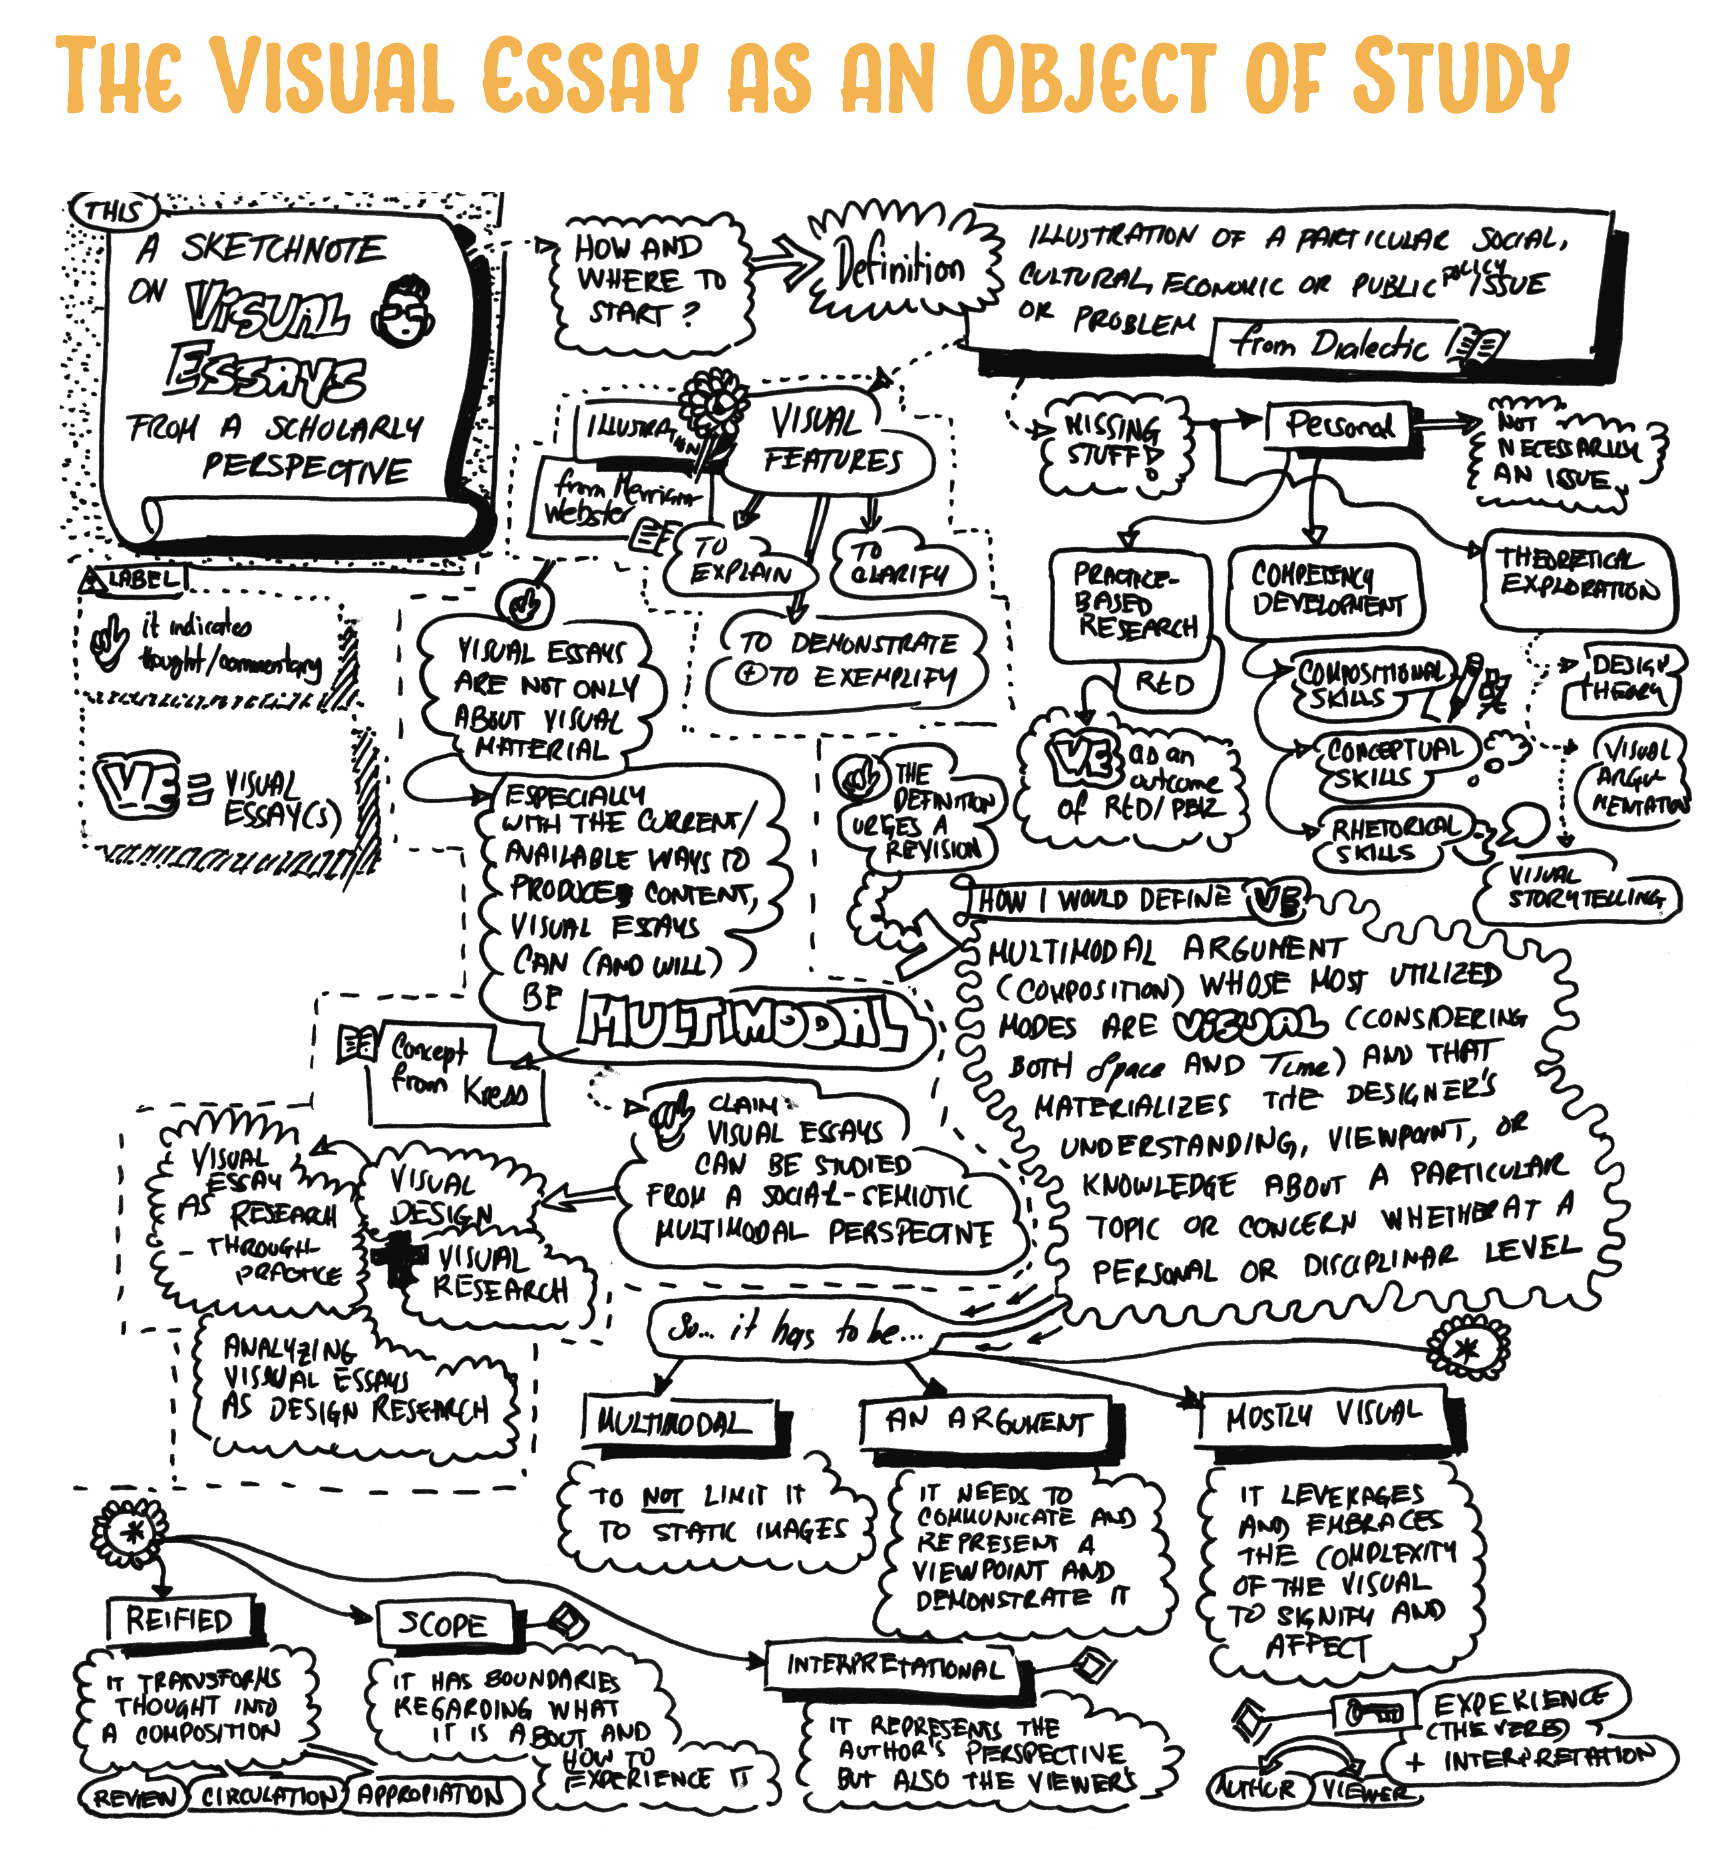 THE VISUAL ESSAY AS AN OBJECT OF STUDY
THIS
A SKETCHNOTE
ON VISUAL
ESSAYS
FROM A SCHOLARLY
PERSPECTIVE
LABEL
it indicates
thought/commentary
VE = VISUAL
ESSAY(S)
HOW AND
WHERE TO
START?
Definition
ILLUSTRATION OF A PARTICULAR SOCIAL,
CULTURAL, ECONOMIC OR PUBLIC POLICY ISSUE
OR PROBLEM
from Dialectic
ILLUSTRATION
from Merriam
Webster
VISUAL
FEATURES
TO
EXPLAIN
TO
CLARIFY
TO DEMONSTRATE
+ TO EXEMPLIFY
MISSING
STUFF!
Personal
NOT
NECESSARILY
AN ISSUE
PRACTICE-
BASED
RESEARCH
R&D
VE as an
outcome
of R&D/PBR
COMPETENCY
DEVELOPMENT
COMPOSITIONAL
SKILLS
CONCEPTUAL
SKILLS
RHETORICAL
SKILLS
THEORETICAL
EXPLORATION
DESIGN
THEORY
VISUAL
ARGU
MENTATION
VISUAL
STORYTELLING
VISUAL ESSAYS
ARE NOT ONLY
ABOUT VISUAL
MATERIAL
ESPECIALLY
WITH THE CURRENT/
AVAILABLE WAYS TO
PRODUCE CONTENT,
VISUAL ESSAYS
CAN (AND WILL)
BE MULTIMODAL
Concept
from Kress
THE
DEFINITION
URGES A
REVISION
HOW I WOULD DEFINE VE
MULTIMODAL ARGUMENT
(COMPOSITION) WHOSE MOST UTILIZED
MODES ARE VISUAL (CONSIDERING
BOTH Space AND Time) AND THAT
MATERIALIZES THE DESIGNER'S
UNDERSTANDING, VIEWPOINT, OR
KNOWLEDGE ABOUT A PARTICULAR
TOPIC OR CONCERN WHETHER AT A
PERSONAL OR DISCIPLINAR LEVEL
CLAIM
VISUAL ESSAYS
CAN BE STUDIED
FROM A SOCIAL-SEMIOTIC
MULTIMODAL PERSPECTIVE
VISUAL
DESIGN
+ VISUAL
RESEARCH
VISUAL
ESSAY
AS RESEARCH
- THROUGH-
PRACTICE
ANALYZING
VISUAL ESSAYS
AS DESIGN RESEARCH
So... it has to be...
*
MULTIMODAL
TO NOT LIMIT IT
TO STATIC IMAGES
AN ARGUMENT
IT NEEDS TO
COMMUNICATE AND
REPRESENT A
VIEWPOINT AND
DEMONSTRATE IT
MOSTLY VISUAL
IT LEVERAGES
AND EMBRACES
THE COMPLEXITY
OF THE VISUAL
TO SIGNIFY AND
AFFECT
*
REIFIED
IT TRANSFORMS
THOUGHT INTO
A COMPOSITION
REVIEW
CIRCULATION
APPROPIATION
SCOPE
IT HAS BOUNDARIES
REGARDING WHAT
IT IS ABOUT AND
HOW TO
EXPERIENCE IT
INTERPRETATIONAL
IT REPRESENTS THE
AUTHOR'S PERSPECTIVE
BUT ALSO THE VIEWER'S
EXPERIENCE
+ INTERPRETATION
AUTHOR
VIEWER